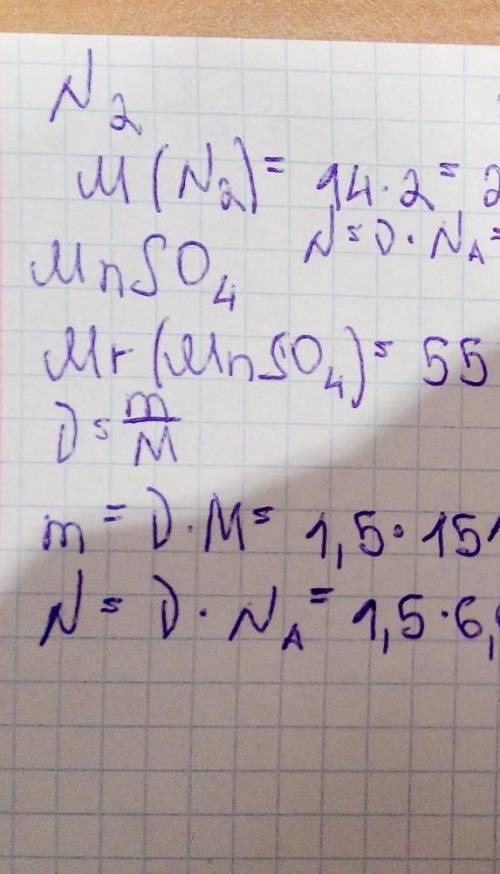 N₂
M(N₂) = 14·2 = 2
N = ν · N_A =
MnSO₄
Mr(MnSO₄) = 55
ν = m/M
m = ν · M = 1,5 · 151
N = ν · N_A = 1,5 · 6,